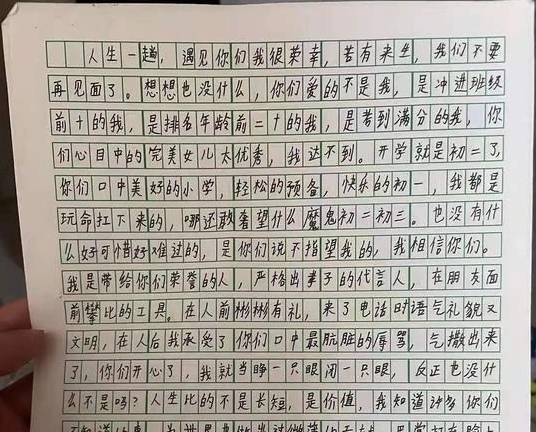 人生一趟，遇见你们我很荣幸，若有来生，我们不要
再见面了。想想也没什么，你们爱的不是我，是冲进班级
前十的我，是排名年龄前二十的我，是考到满分的我，你
们心目中的完美女儿太优秀，我达不到。开学就是初二了，
你们口中美好的小学，轻松的预备，快乐的初一，我都是
玩命扛下来的，哪还敢奢望什么魔鬼初二初三。也没有什
么好可惜好难过的，是你们说不指望我的，我相信你们。
我是带给你们荣誉的人，严格出孝子的代言人，在朋友面
前攀比的工具。在人前彬彬有礼，来了电话时语气礼貌又
文明，在人后我承受了你们口中最肮脏的辱骂，气撒出来
了，你们开心了，我就当睁一只眼闭一只眼，反正也没什
么不是吗？人生比的不是长短，是价值，我知道许多你们